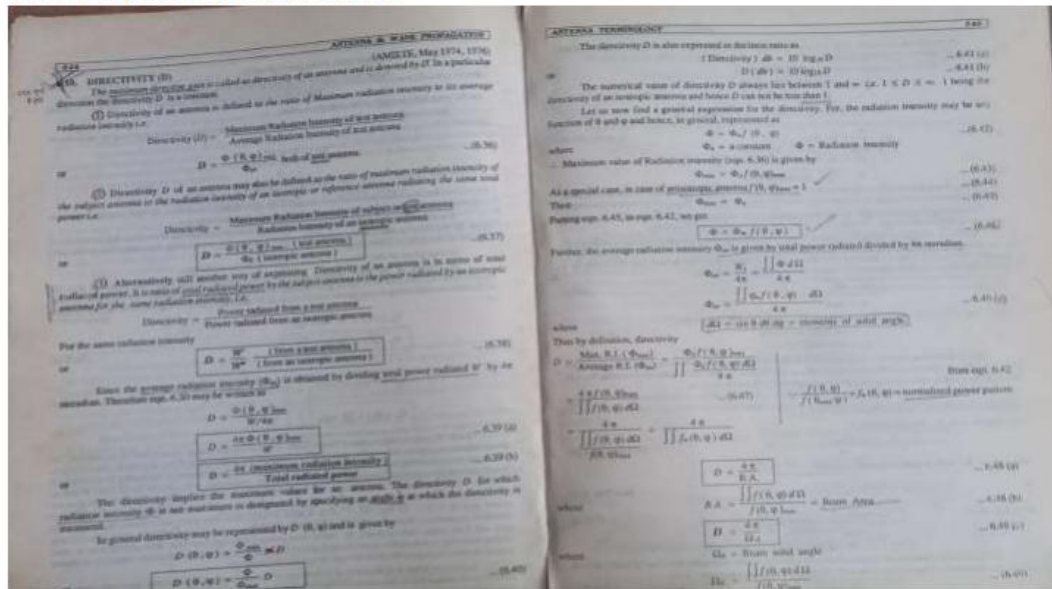 644
ANTENNA & WAVE PROPAGATION
(AMIETE, May 1974, 1976)
DIRECTIVITY (D)
The maximum directive gain is called as directivity of an antenna and is denoted by D. In a particular
direction the directivity D is a constant.
(1) Directivity of an antenna is defined as the ratio of Maximum radiation intensity to its average
radiation intensity i.e.
Directivity (D) = Maximum Radiation Intensity of test antenna / Average Radiation Intensity of test antenna
or D = Φ(θ, φ)max / Φav both of test antenna. ...(6.36)
(2) Directivity D of an antenna may also be defined as the ratio of maximum radiation intensity of
the subject antenna to the radiation intensity of an isotropic or reference antenna radiating the same total
power i.e.
Directivity = Maximum Radiation Intensity of subject or test antenna / Radiation Intensity of an isotropic antenna
or D = Φ(θ, φ)max (test antenna) / Φ0 (isotropic antenna) ...(6.37)
(3) Alternatively still another way of expressing Directivity of an antenna is in terms of total
radiated power. It is ratio of total radiated power by the subject antenna to the power radiated by an isotropic
antenna for the same radiation intensity, i.e.
Directivity = Power radiated from a test antenna / Power radiated from an isotropic antenna
For the same radiation intensity
or D = W' (from a test antenna) / W'' (from an isotropic antenna) ...(6.38)
Since the average radiation intensity (Φav) is obtained by dividing total power radiated W by 4π
steradian. Therefore eqn. 6.36 may be written as
D = Φ(θ, φ)max / W/4π
D = 4π Φ(θ, φ)max / W ... 6.39 (a)
or D = 4π (maximum radiation intensity) / Total radiated power ... 6.39 (b)
The directivity implies the maximum values for an antenna. The directivity D for which
radiation intensity Φ is not maximum is designated by specifying an angle at which the directivity is
measured.
In general directivity may be represented by D (θ, φ) and is given by
D (θ, φ) = D
D (θ, φ) = Φ / Φmax D ...(6.40)
ANTENNA TERMINOLOGY
The directivity D is also expressed in decibels ratio as
(Directivity) db = 10 log10 D ... 6.41 (a)
or D (db) = 10 log10 D ... 6.41 (b)
The numerical value of directivity D always lies between 1 and ∞ i.e. 1 ≤ D ≤ ∞. 1 being the
directivity of an isotropic antenna and hence D can not be less than 1.
Let us now find a general expression for the directivity. For, the radiation intensity may be any
function of θ and φ and hence, in general, represented as
Φ = Φa f (θ, φ) ...(6.42)
where Φa = a constant Φ = Radiation intensity
∴ Maximum value of Radiation intensity (eqn. 6.36) is given by
Φmax = Φa f (θ, φ)max ...(6.43)
As a special case, in case of antenna f (θ, φ)max = 1 ...(6.44)
Then Φmax = Φa ...(6.45)
Putting eqn. 6.45, in eqn. 6.42, we get
Φ = Φm f (θ, φ) ...(6.46)
Further, the average radiation intensity Φav is given by total power radiated divided by 4π steradian.
Φav = / 4π = ∫∫ Φ dΩ / 4π
Φav = ∫∫ Φa f (θ, φ) dΩ / 4π
where dΩ = sin θ dθ dφ = elements of solid angle.
Thus by definition, directivity
D = Max. R.I. (Φmax) / Average R.I. (Φav) = Φa f (θ, φ)max / ∫∫ Φa f (θ, φ) dΩ / 4π from eqn. 6.42
= 4π f (θ, φ)max / ∫∫ f (θ, φ) dΩ ...(6.47) = fn (θ, φ) = normalized power pattern
= 4π / ∫∫ f (θ, φ) dΩ / f(θ, φ)max = 4π / ∫∫ fn (θ, φ) dΩ
D = 4π / B.A. ... 6.48 (a)
where B.A. = ∫∫ f (θ, φ) dΩ / f (θ, φ)max = Beam Area ... 6.48 (b)
D = 4π / ΩA
where ΩA = Beam solid angle
ΩA = ∫∫ f (θ, φ) dΩ / f (θ, φ)max